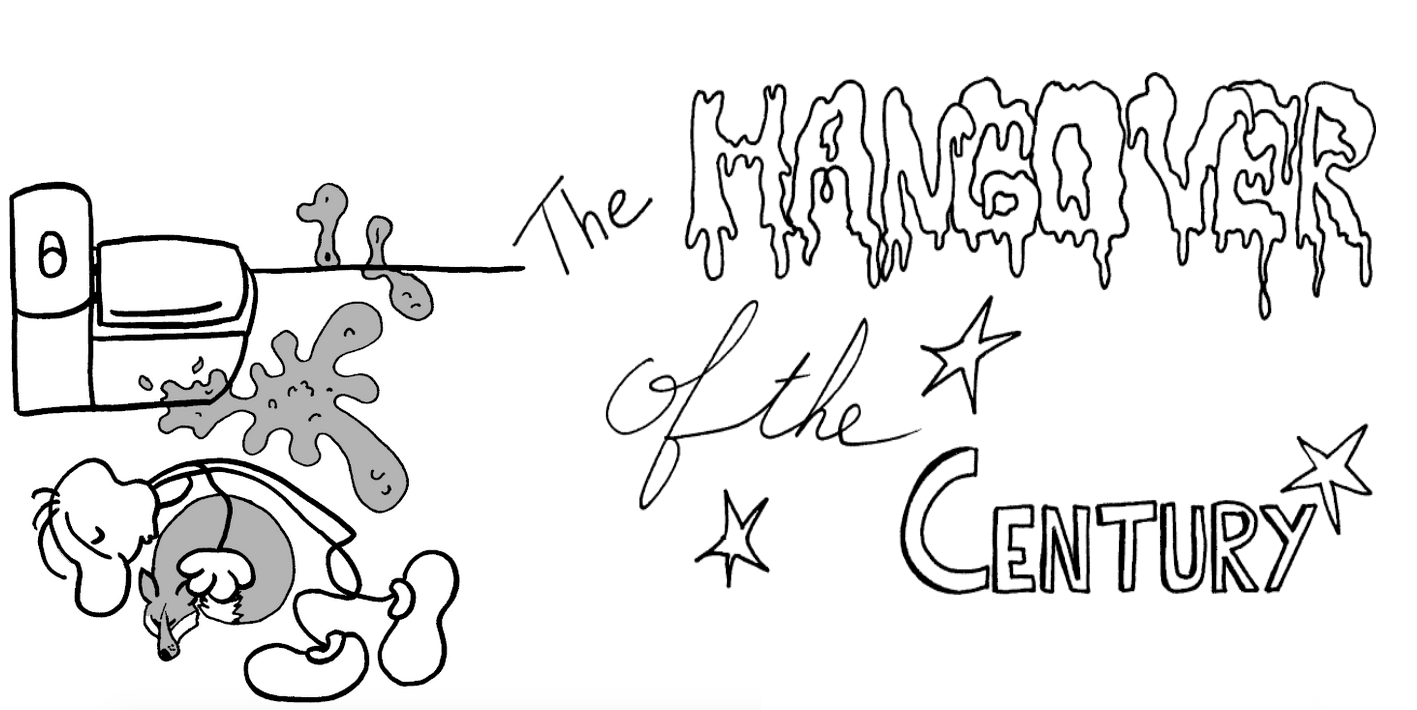 The HANGOVER
of the
CENTURY